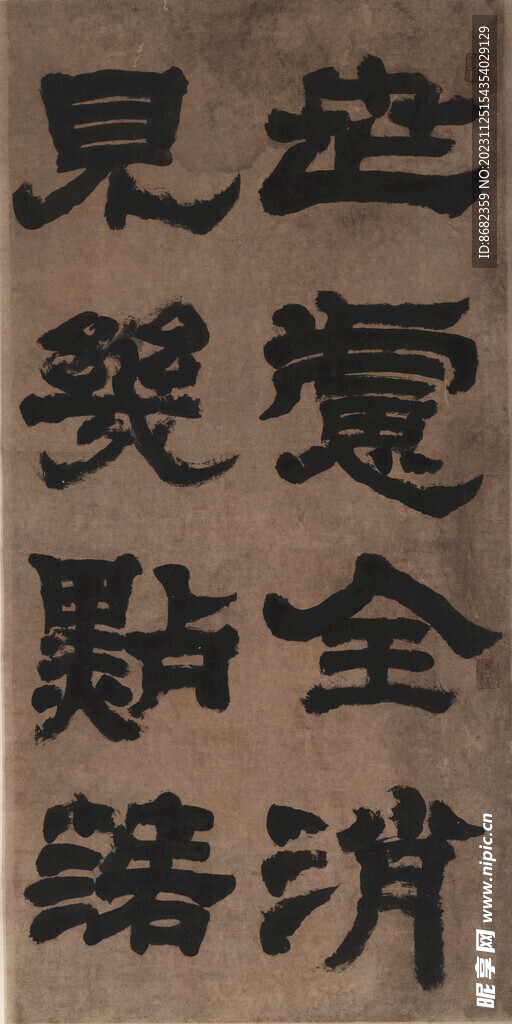 世慮全消
見幾點渚
ID:8682359 NO:20231125154354029129
昵享网 www.nipic.cn